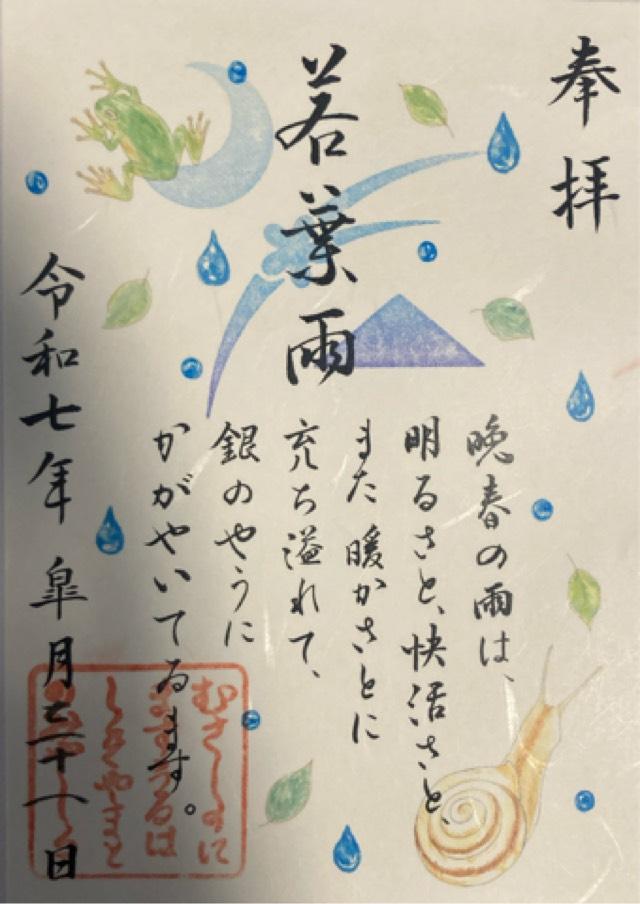 奉拝
若葉雨
晩春の雨は、
明るさと、快活さと、
また暖かさとに
充ち溢れて、
銀のやうに
かがやいてゐます。
令和七年 皐月二十一日
むさしのに